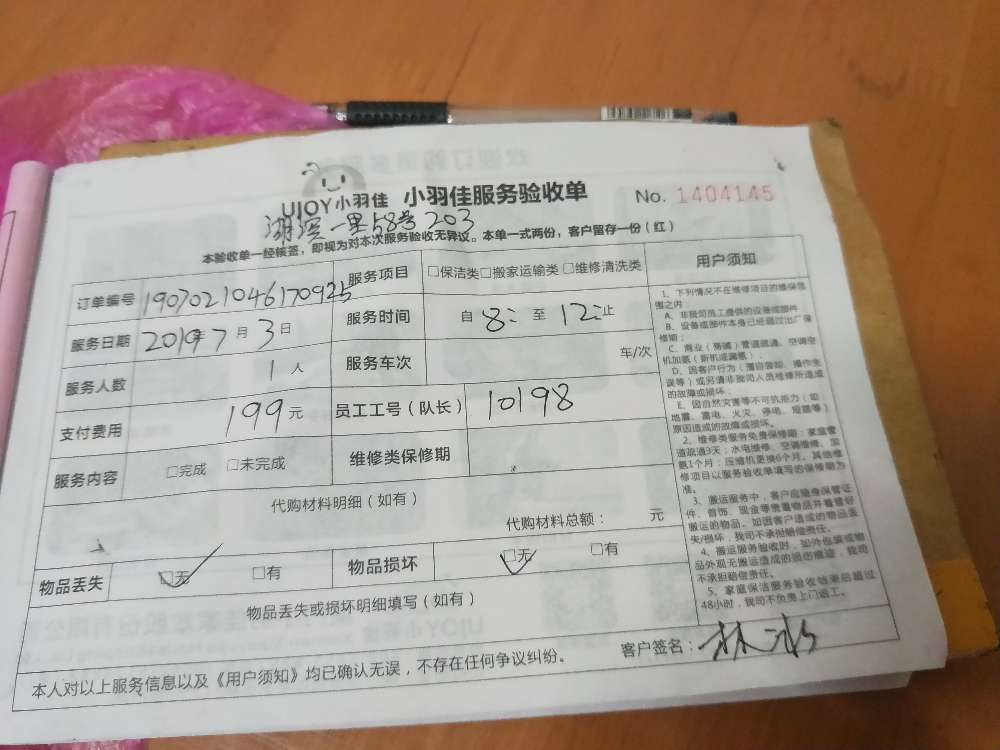 UJOY小羽佳 小羽佳服务验收单 No. 1404145
湖滨一里58号203
本验收单一经核签，即视为对本次服务验收无异议。本单一式两份，客户留存一份（红）
订单编号 190702104617092 服务项目 □保洁类□搬家运输类□维修清洗类
服务日期 2019年7月3日 服务时间 自 8: 至 12: 止
服务人数 1人 服务车次 车/次
支付费用 199元 员工工号（队长） 10198
服务内容 □完成 □未完成 维修类保修期
代购材料明细（如有）
代购材料总额： 元
物品丢失 □无 □有 物品损坏 □无 □有
物品丢失或损坏明细填写（如有）
本人对以上服务信息以及《用户须知》均已确认无误，不存在任何争议纠纷。 客户签名：林
用户须知
1、下列情况不在维修项目的维保范
围之内：
A、非我司员工提供的设备或部件
B、设备或部件本身已经超过出厂保
修期；
C、商业（房铺）管道疏通、空调空
机加氨（新机或漏氨）；
D、因客户行为（擅自装卸、操作失
误等）或另请非我司人员维修所造成
的故障或损坏；
E、因自然灾害等不可抗拒力（如：
地震、雷电、火灾、停电、短路等）
原因造成的故障或损坏。
2、维修类服务免费保修期：家庭管
道疏通3天；水电维修、空调维修、加
氨1个月；压缩机更换6个月。其他维
修项目以服务验收单填写的保修期为
准。
3、搬运服务中，客户应随身保管证
件、首饰、现金等贵重物品并看管好
搬运的物品。如因客户造成的物品丢
失/损坏，我司不承担赔偿责任。
4、搬运服务验收时，如外包装或物
品外观无搬运造成的损伤痕迹，我司
不承担赔偿责任。
5、家庭保洁服务验收结束后超过
48小时，我司不负责上门返工。